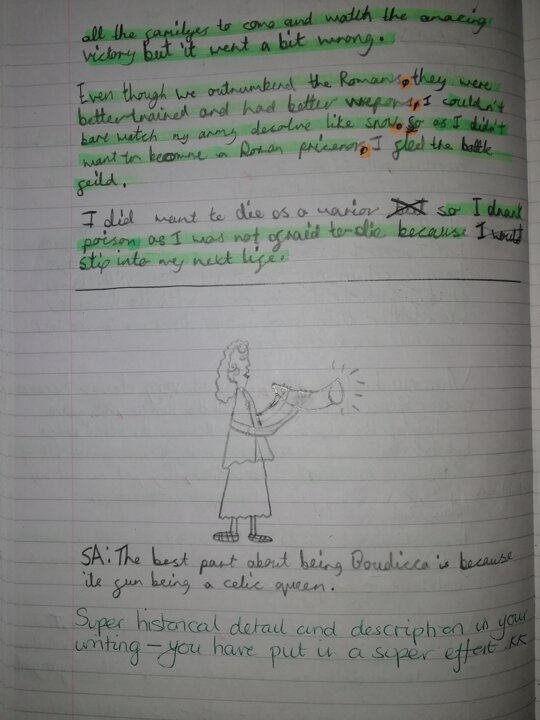 all the familyes to come and watch the amazing
victory but it went a bit wrong.
Even though we outnumbend the Romans, they were
better trained and had better wepons, I couldn't
bare watch my army desolve like snow. So as I didn't
want to become a Roman prisenors, I fled the battle
feild.
I did want to die as a warior but so I drank
poison as I was not afraid to die because I would
slip into my next life.
SA: The best part about being Boudicca is because
it's fun being a celic queen.
Super historical detail and description in your
writing – you have put in a super effort. KK